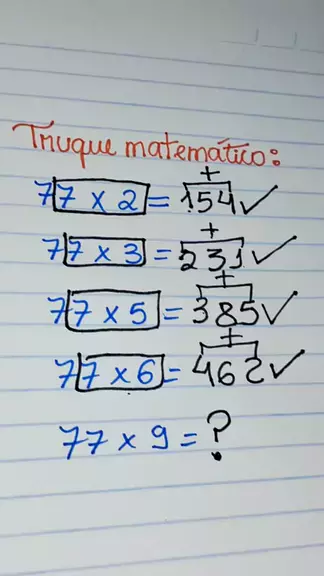 Truque matemático:
77 x 2 = 154 ✓
+
77 x 3 = 231 ✓
+
77 x 5 = 385 ✓
+
77 x 6 = 462 ✓
+
77 x 9 = ?